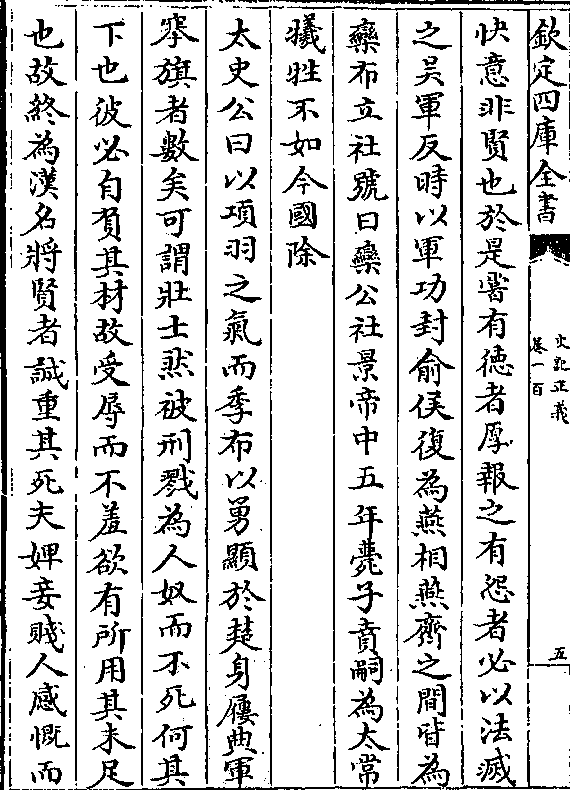 欽定四庫全書
史記正義
卷一百
五
快意非賢也於是嘗有德者厚報之有怨者必以法滅
之吳軍反時以軍功封俞侯復為燕相燕齊之間皆為
欒布立社號曰欒公社景帝中五年薨子賁嗣為太常
犧牲不如令國除
太史公曰以項羽之氣而季布以勇顯於楚身屨典軍
搴旗者數矣可謂壯士然被刑戮為人奴而不死何其
下也彼必自負其材故受辱而不羞欲有所用其未足
也故終為漢名將賢者誠重其死夫婢妾賤人感慨而